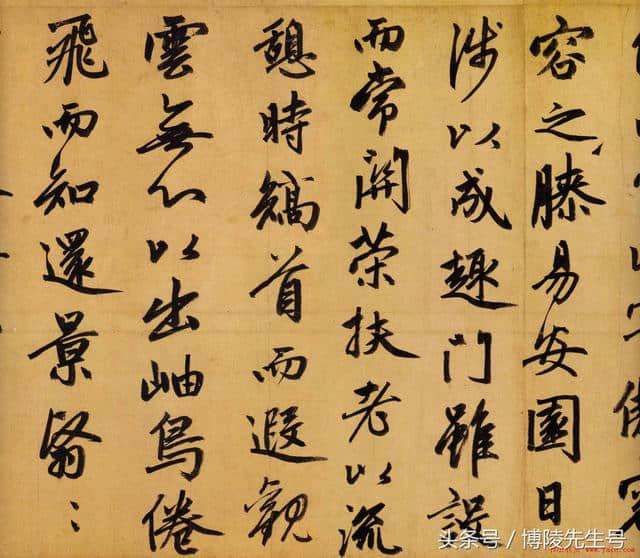 容之膝易安園日
涉以成趣門雖設
而常關策扶老以流
憩時矯首而遐觀
雲無心以出岫鳥倦
飛而知還景翳〻
头条号 / 博陵先生号